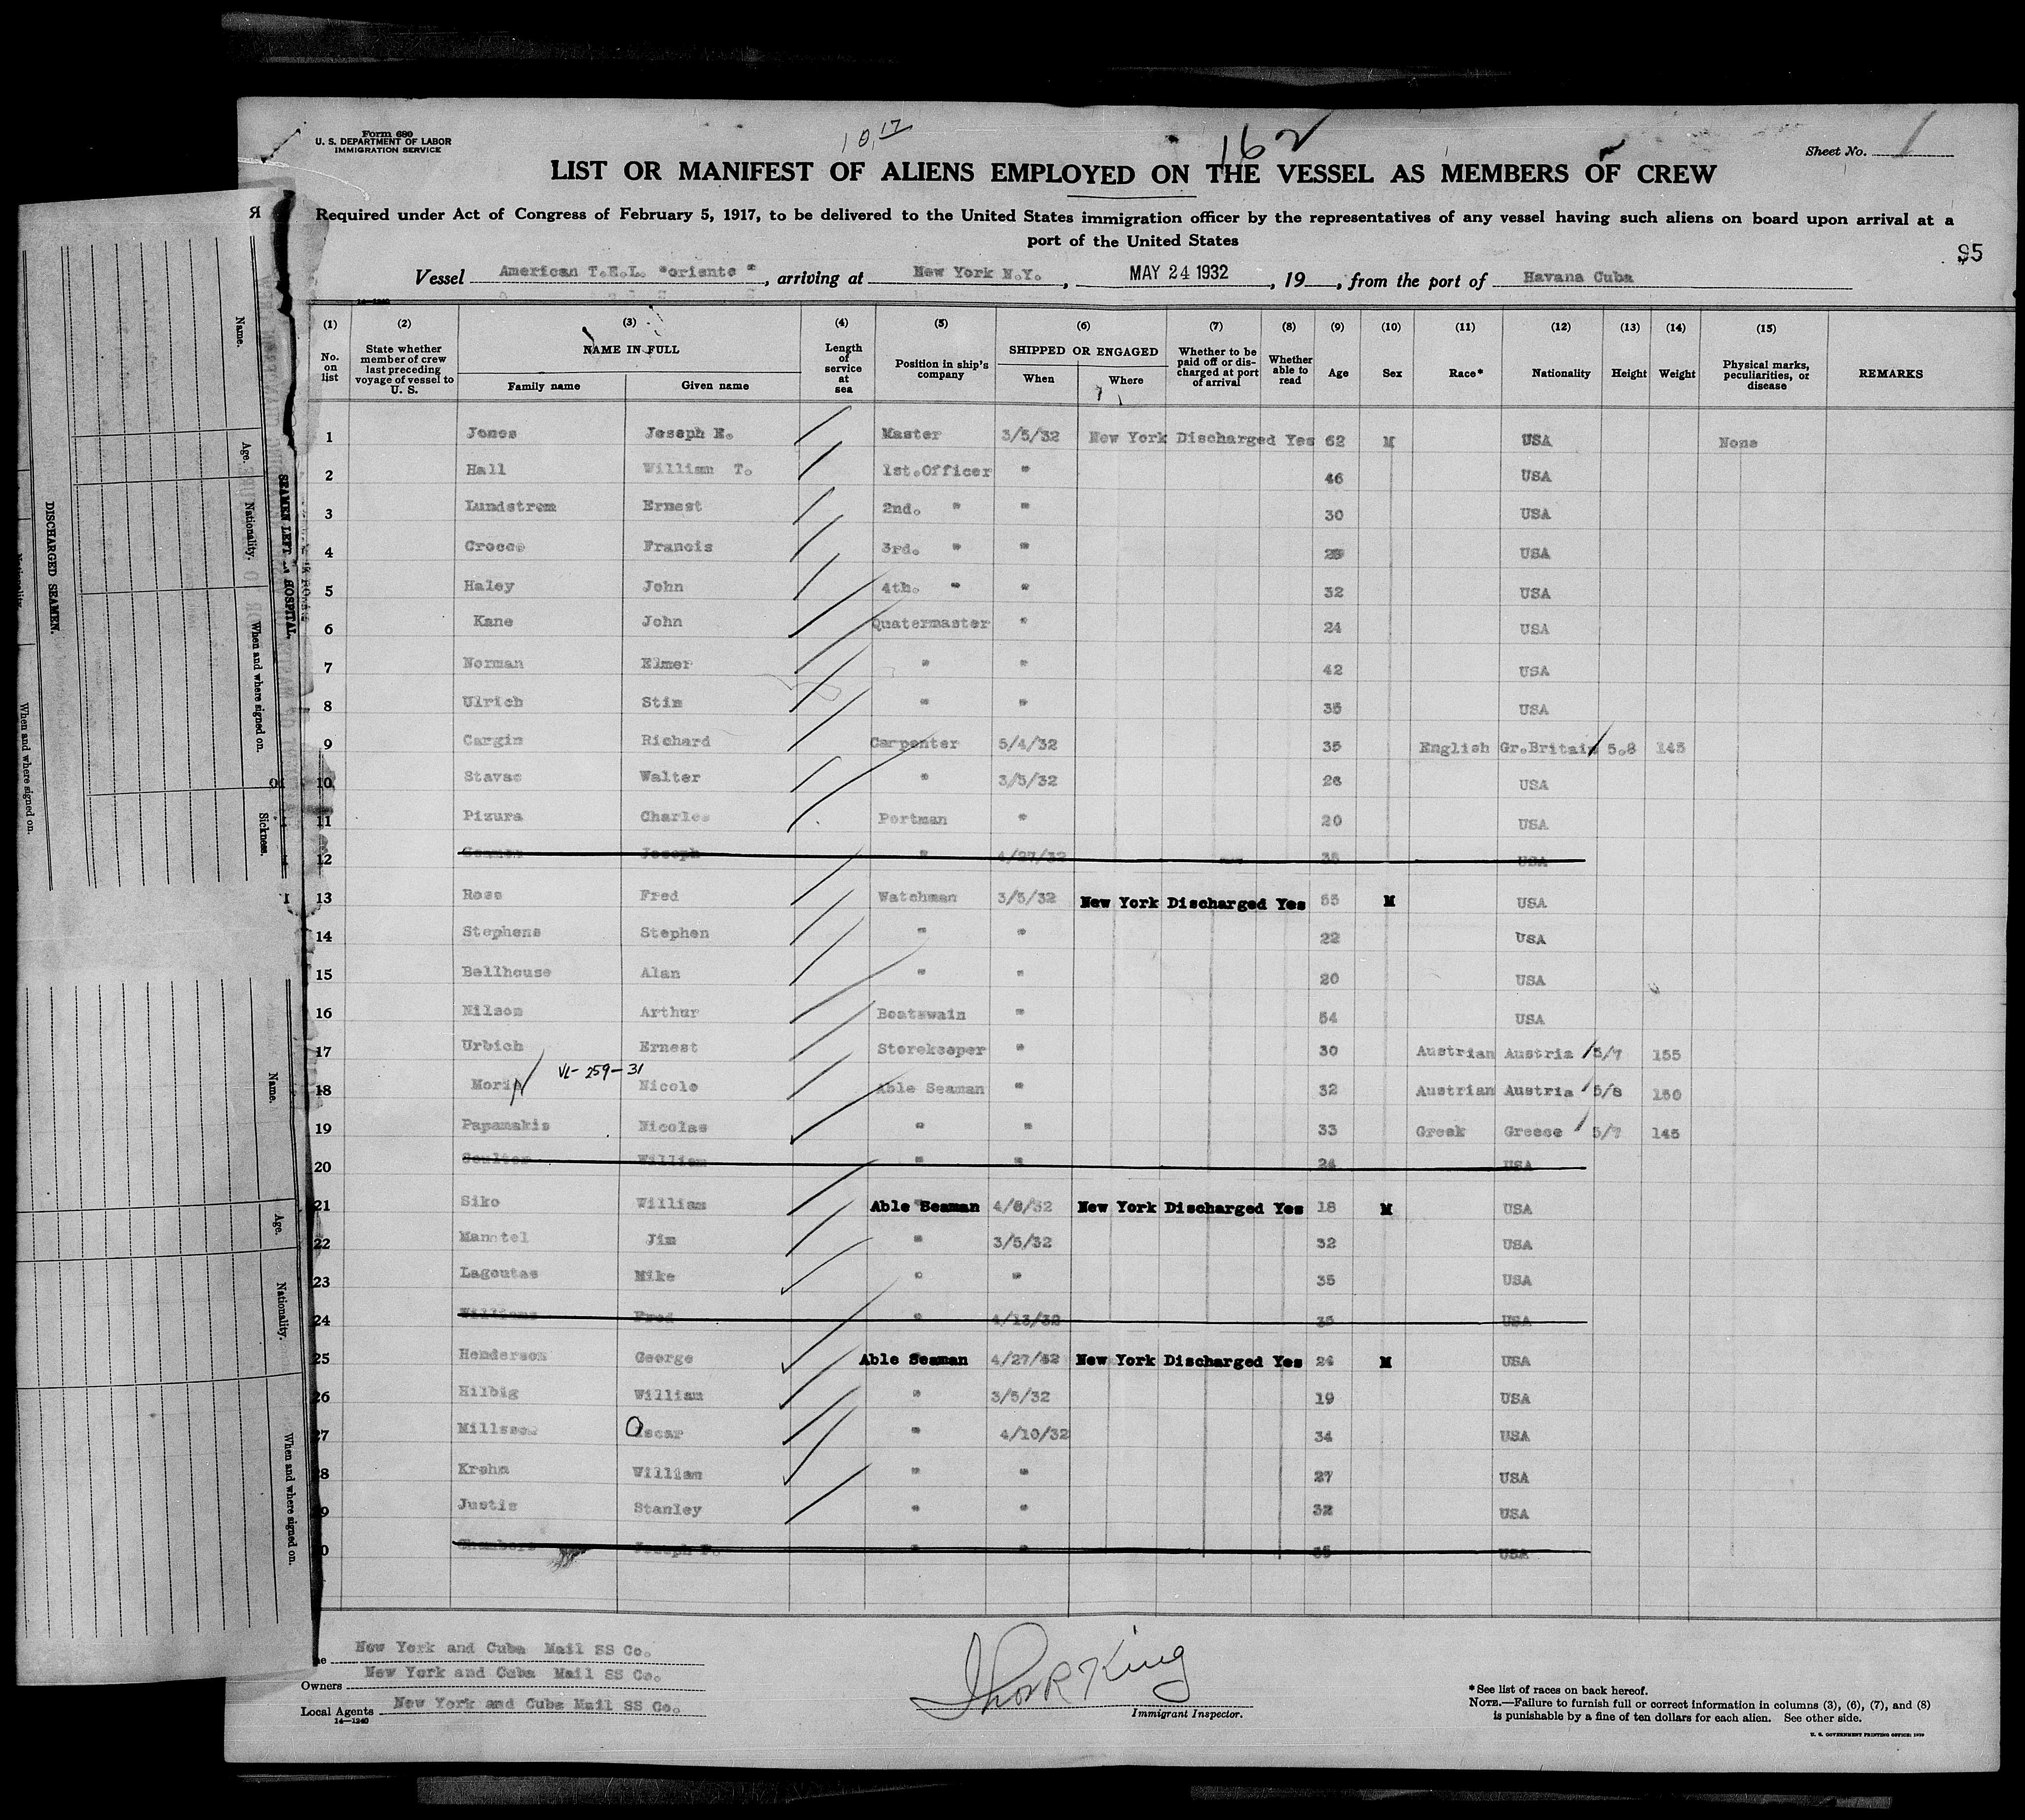 Form 680
U. S. DEPARTMENT OF LABOR
IMMIGRATION SERVICE
162
Sheet No. 1
LIST OR MANIFEST OF ALIENS EMPLOYED ON THE VESSEL AS MEMBERS OF CREW
Required under Act of Congress of February 5, 1917, to be delivered to the United States immigration officer by the representatives of any vessel having such aliens on board upon arrival at a
port of the United States
95
Vessel American T.E.L. "oriente ", arriving at New York N.Y., MAY 24 1932, 19 , from the port of Havana Cuba
14—1240
(1) (2) (3) (4) (5) (6) (7) (8) (9) (10) (11) (12) (13) (14) (15)
No. on list State whether member of crew last preceding voyage of vessel to U. S. NAME IN FULL Family name Given name Length of service at sea Position in ship's company SHIPPED OR ENGAGED When Where Whether to be paid off or discharged at port of arrival Whether able to read Age Sex Race* Nationality Height Weight Physical marks, peculiarities, or disease REMARKS
1 Jones Joseph E. Master 3/5/32 New York Discharged Yes 62 M USA None
2 Hall William T. 1st.Officer " 46 USA
3 Lundstrom Ernest 2nd. " " 30 USA
4 Francis 3rd. " " USA
5 Haley John 4th. " " 32 USA
6 Kane John Quatermaster " 24 USA
7 Norman Elmer " " 42 USA
8 Ulrich Stim " " 35 USA
9 Cargin Richard Carpenter 5/4/32 35 English Gr.Britain 5.8 145
10 Stavac Walter " 3/5/32 26 USA
11 Pizura Charles Portman " 20 USA
12 Joseph " 4/27/32 35 USA
13 Rose Fred Watchman 3/5/32 New York Discharged Yes 55 M USA
14 Stephens Stephen " " 22 USA
15 Bellhouse Alan " " 20 USA
16 Nilson Arthur Boatswain " 54 USA
17 Urbich Ernest Storekeeper " 30 Austrian Austria 5/7 155
VL-259-31
18 Morin Nicolo Able Seaman " 32 Austrian Austria 5/8 150
19 Papamakis Nicolas " " 33 Greek Greece 5/7 145
20 Coulter William " " 24 USA
21 Siko William Able Seaman 4/8/32 New York Discharged Yes 18 M USA
22 Manntel Jim " 3/5/32 32 USA
23 Lagoutas Mike " " 35 USA
24 Williams Fred " 4/13/32 35 USA
25 Henderson George Able Seaman 4/27/32 New York Discharged Yes 24 M USA
26 Hilbig William " 3/5/32 19 USA
27 Millsson Oscar " 4/10/32 34 USA
28 Krohn William " " 27 USA
29 Justis Stanley " " 32 USA
30 Chambers Joseph F. " " USA
New York and Cuba Mail SS Co.
Owners New York and Cuba Mail SS Co.
Local Agents New York and Cuba Mail SS Co.
14—1240
Immigrant Inspector.
* See list of races on back hereof.
NOTE.—Failure to furnish full or correct information in columns (3), (6), (7), and (8)
is punishable by a fine of ten dollars for each alien. See other side.
U. S. GOVERNMENT PRINTING OFFICE: 1930
DISCHARGED SEAMEN.
Name.
Age.
Nationality.
When and where signed on.
Sickness.
SEAMEN LEFT HOSPITAL.
When and where signed on.
Name.
Age.
Nationality.
When and where signed on.